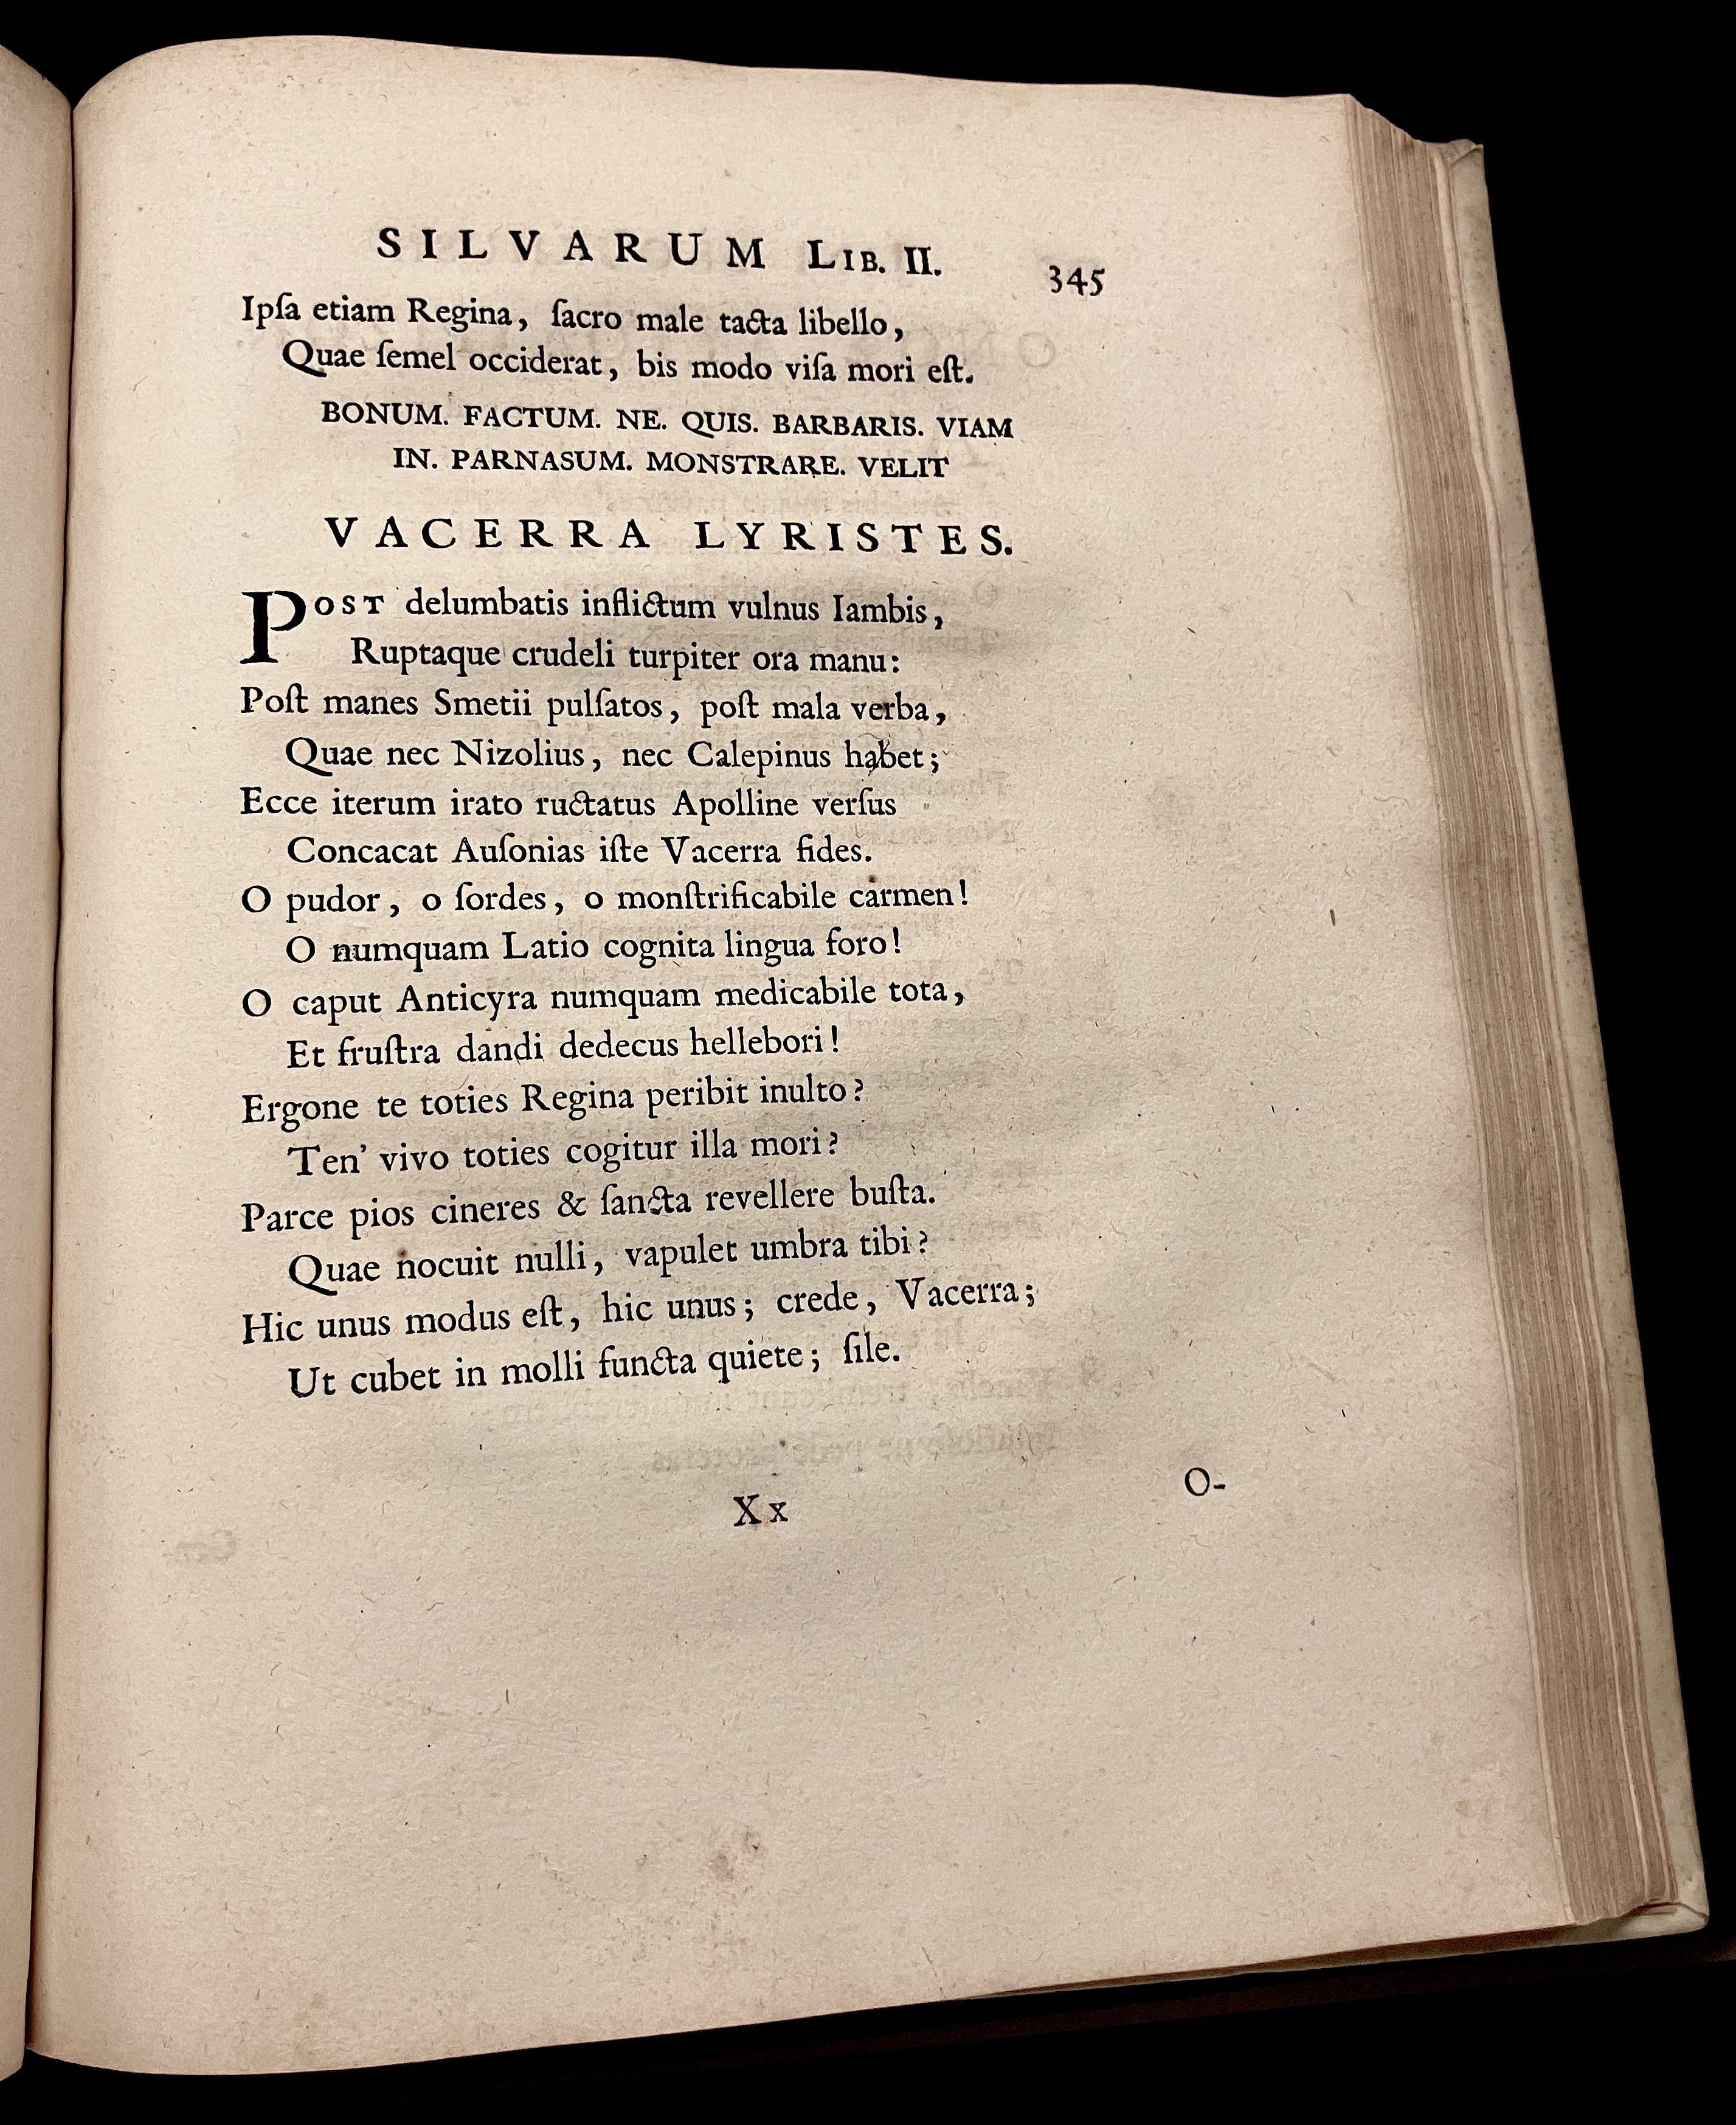 SILVARUM LIB. II.
345
Ipſa etiam Regina, ſacro male tacta libello,
Quae ſemel occiderat, bis modo viſa mori eſt.
BONUM. FACTUM. NE. QUIS. BARBARIS. VIAM
IN. PARNASUM. MONSTRARE. VELIT
VACERRA LYRISTES.
POST delumbatis inflictum vulnus Iambis,
Ruptaque crudeli turpiter ora manu:
Poſt manes Smetii pulſatos, poſt mala verba,
Quae nec Nizolius, nec Calepinus habet;
Ecce iterum irato ructatus Apolline verſus
Concacat Auſonias iſte Vacerra fides.
O pudor, o ſordes, o monſtrificabile carmen!
O numquam Latio cognita lingua foro!
O caput Anticyra numquam medicabile tota,
Et fruſtra dandi dedecus hellebori!
Ergone te toties Regina peribit inulto?
Ten' vivo toties cogitur illa mori?
Parce pios cineres & ſancta revellere buſta.
Quae nocuit nulli, vapulet umbra tibi?
Hic unus modus eſt, hic unus; crede, Vacerra;
Ut cubet in molli functa quiete; ſile.
Xx
O-